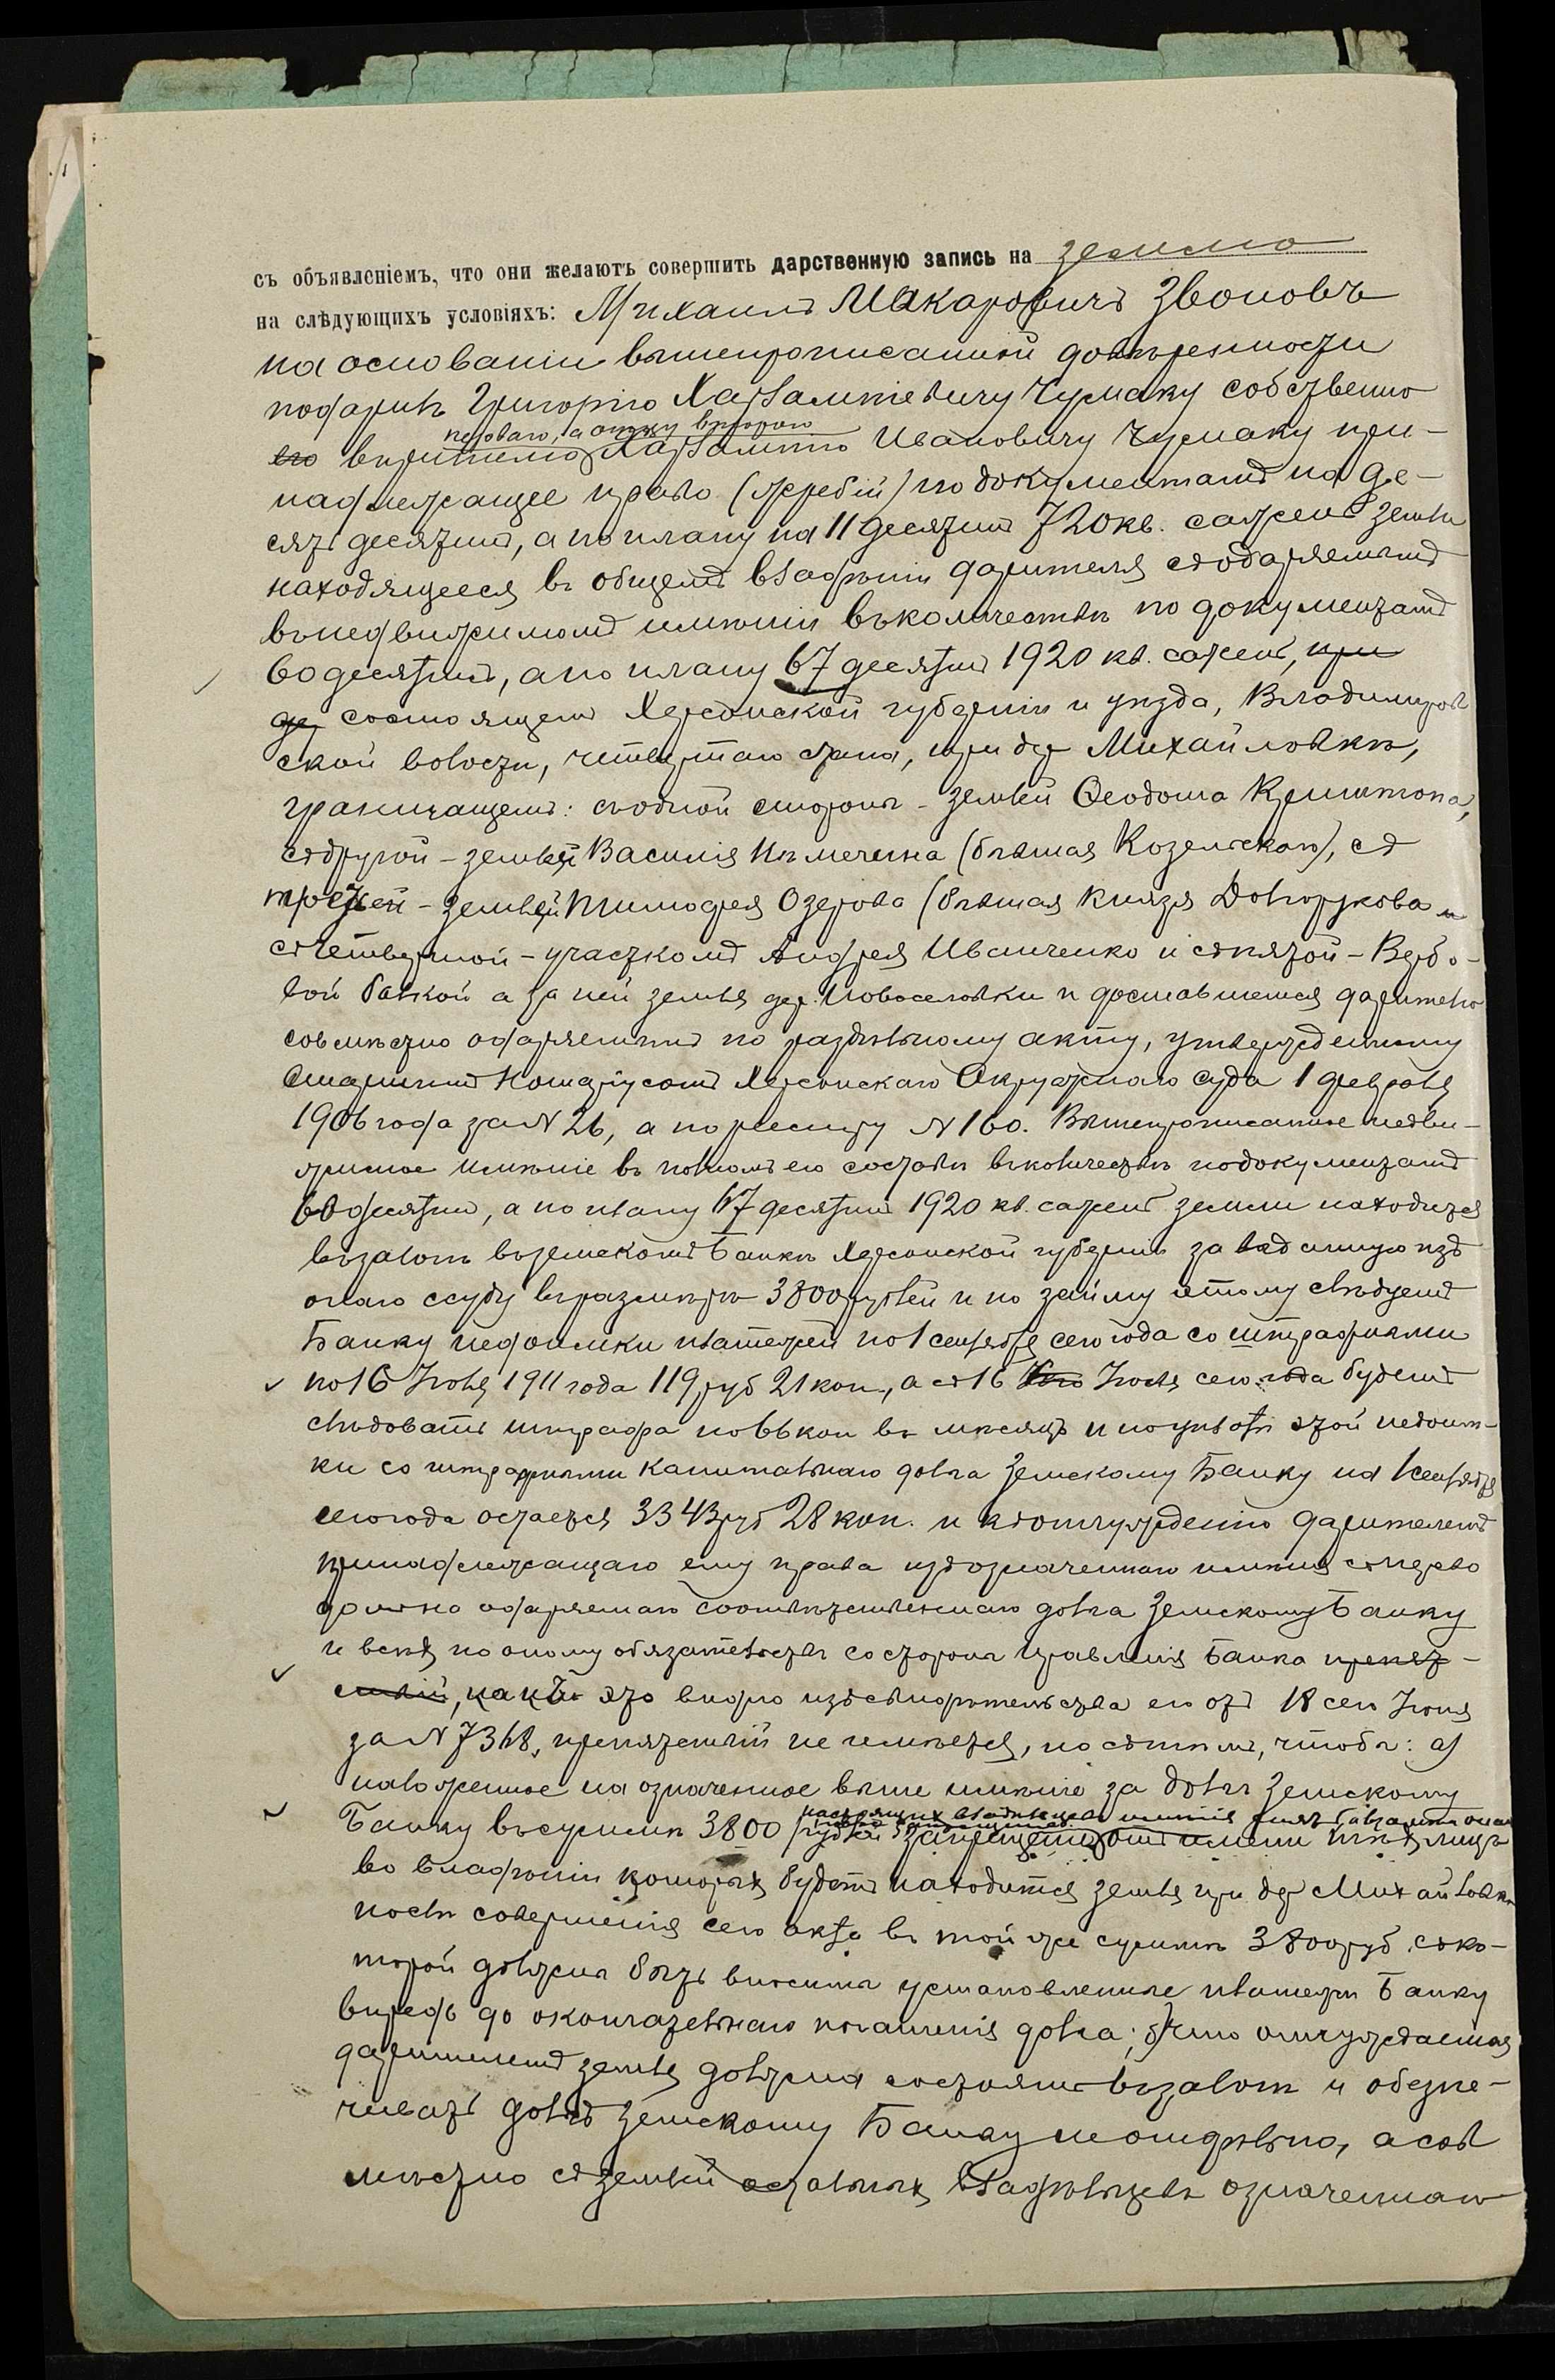 съ объявленіемъ, что они желаютъ совершить дарственную запись на землю
на слѣдующихъ условіяхъ: Михаилъ Макаровичъ Звоновъ
на основаніи вышепрописанной довѣренности
подарилъ Григорію Харлампіевичу Чумаку собственно
перваго, а отцу второго
его вѣрителю Харлампію Ивановичу Чумаку при-
надлежащее право (жребій) по документамъ на де-
сять десятинъ, а по плану на 11 десятинъ 720 кв. сажень земли
находящееся въ общемъ владѣніи дарителя съ одаряемымъ
въ недвижимомъ имѣніи въ количествѣ по документамъ
60 десятинъ, а по плану 67 десятинъ 1920 кв. сажень, при
де состоящемъ Херсонской губерніи и уѣзда, Владимиров
ской волости, четвертаго стана, при дер Михайловкѣ,
граничащемъ: съ одной стороны - землей Ѳеодота
съ другой - землей Василія Нѣмечена (бывшая Козельскаго), съ
третьей - землей Тимофея Озерова (бывшая Князя Долгорукова и
съ четвертой - участкомъ Андрея Иванченко и съ пятой - Вербо-
вой балкой а за ней земля дер. Новоселовки и доставшемся дарителю
совмѣстно одаряемымъ по раздѣльному акту, утвержденному
Старшимъ Нотаріусомъ Херсонскаго Окружнаго суда 1 февраля
1906 года за N 26, а по реестру N 160. Вышепрописанное недви-
жимое имѣніе въ полномъ его составѣ въ количествѣ по документамъ
60 десятинъ, а по плану 67 десятинъ 1920 кв. сажень земли находится
въ залогѣ въ Земскомъ Банкѣ Херсонской губерніи за выданную изъ
онаго ссуду въ размѣрѣ 3800 рублей и по займу этому слѣдуетъ
Банку недоимки платежей по 1 сентября сего года со штрафами
по 16 Іюля 1911 года 119 руб 21 коп., а съ 16 Іюля сего года будетъ
слѣдовать штрафа по 66 коп въ мѣсяцъ и по уплатѣ этой недоим-
ки со штрафами капитальнаго долга Земскому Банку на 1 сентября
сего года остается 3343 руб 28 коп. и къ отчужденію дарителемъ
принадлежащаго ему права изъ означеннаго имѣнія съ перево
домъ на одаряемаго соотвѣтственнаго долга Земскому Банку
и всѣхъ по оному обязательствъ со стороны Правленія Банка препят-
ствій, какъ это видно изъ свидѣтельства его отъ 18 сего Іюня
за N 7368, препятствій не имѣется, но съ тѣмъ, чтобы: а)
наложенное на означенное выше имѣніе за долгъ Земскому
настоящихъ владѣльцевъ имѣнія
Банку въ суммѣ 3800 рублей запрещеніе имени тѣхъ лицъ
во владѣніи которыхъ будетъ находиться земля при дер Михайловкѣ
послѣ совершенія сего акта въ той же суммѣ 3800 руб, съ ко-
торой должны быть вносимы установленные платежи Банку
впредь до окончательнаго погашенія долга; б) что отчуждаемая
дарителемъ земля должна состоять въ залогѣ и обезпе-
чивать долгъ Земскому Банку не отдѣльно, а сов
мѣстно съ землей остальныхъ владѣльцевъ означеннаго